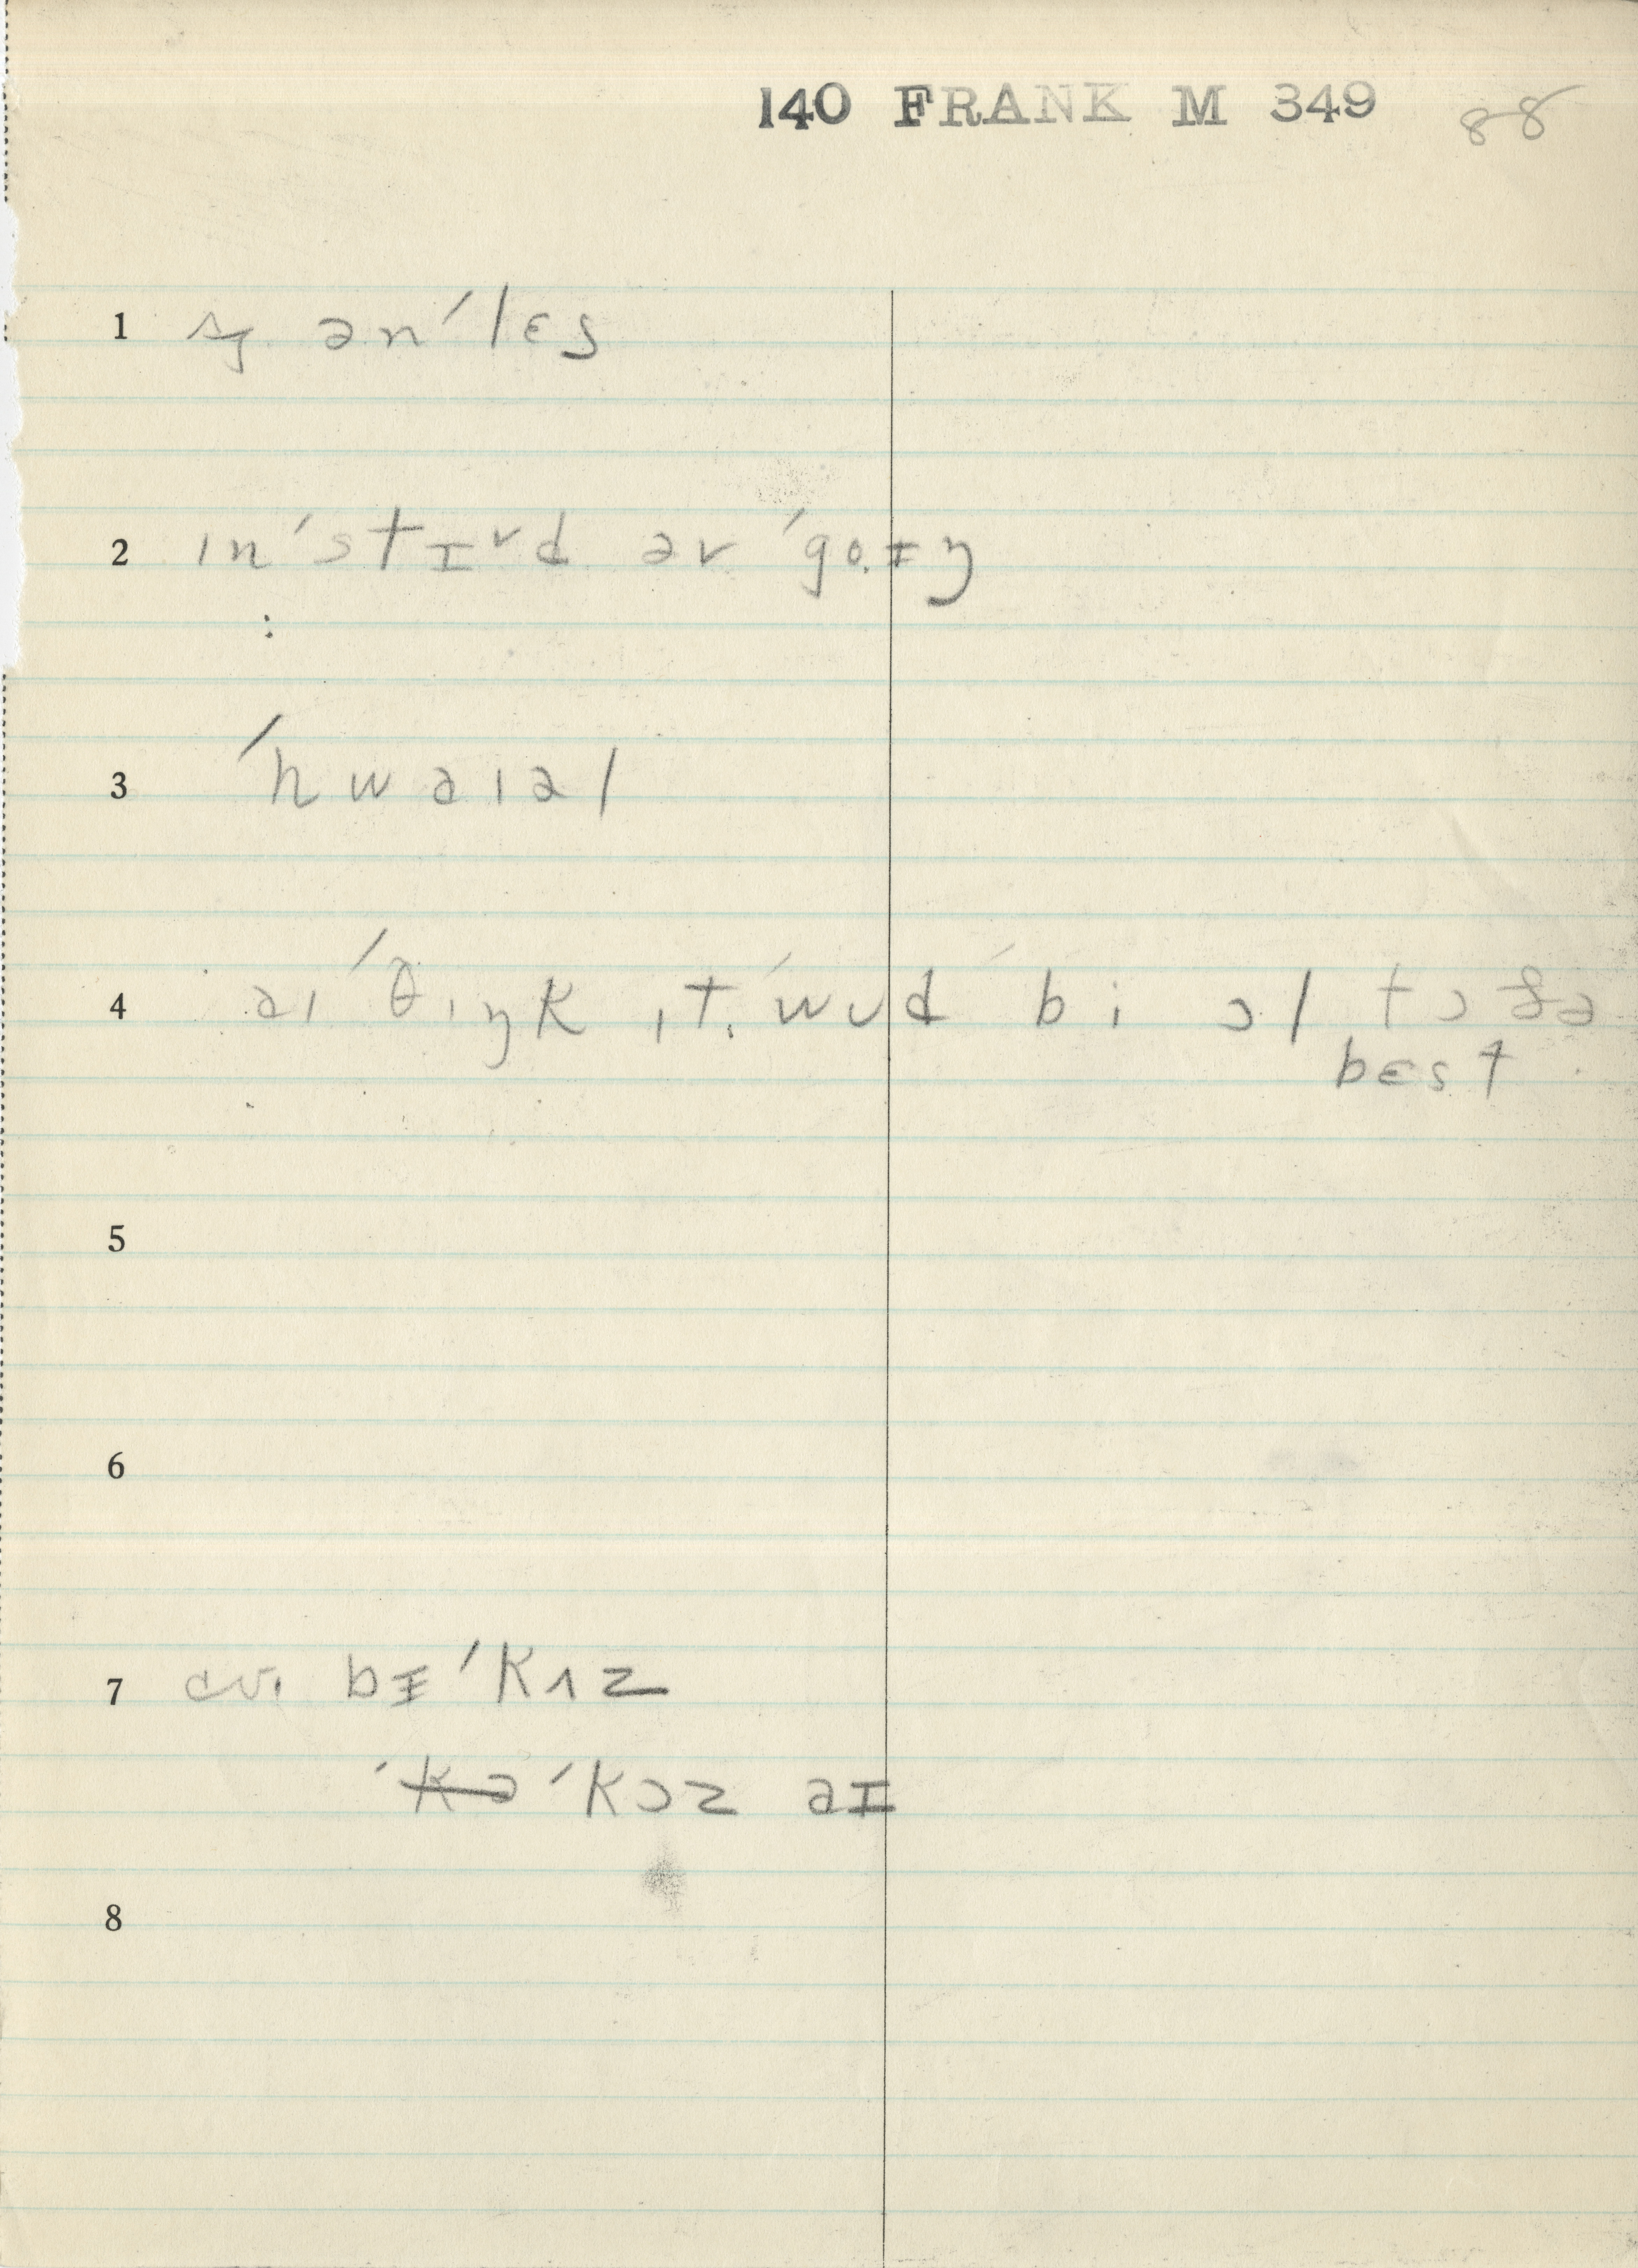 140 FRANK M 349 88
1 ən ˈlɛs
2 ɪnˈstɪᵛd əv ˈgo.ɪŋ
3 ˈhwaɪəl
4 aɪ ˈθɪŋk ɪt. ˈwʊd bi ɔl tɔ ðə
bɛst
5
6
7 cv. bɪˈkʌz
ˈkə ˈkɔz aɪ
8